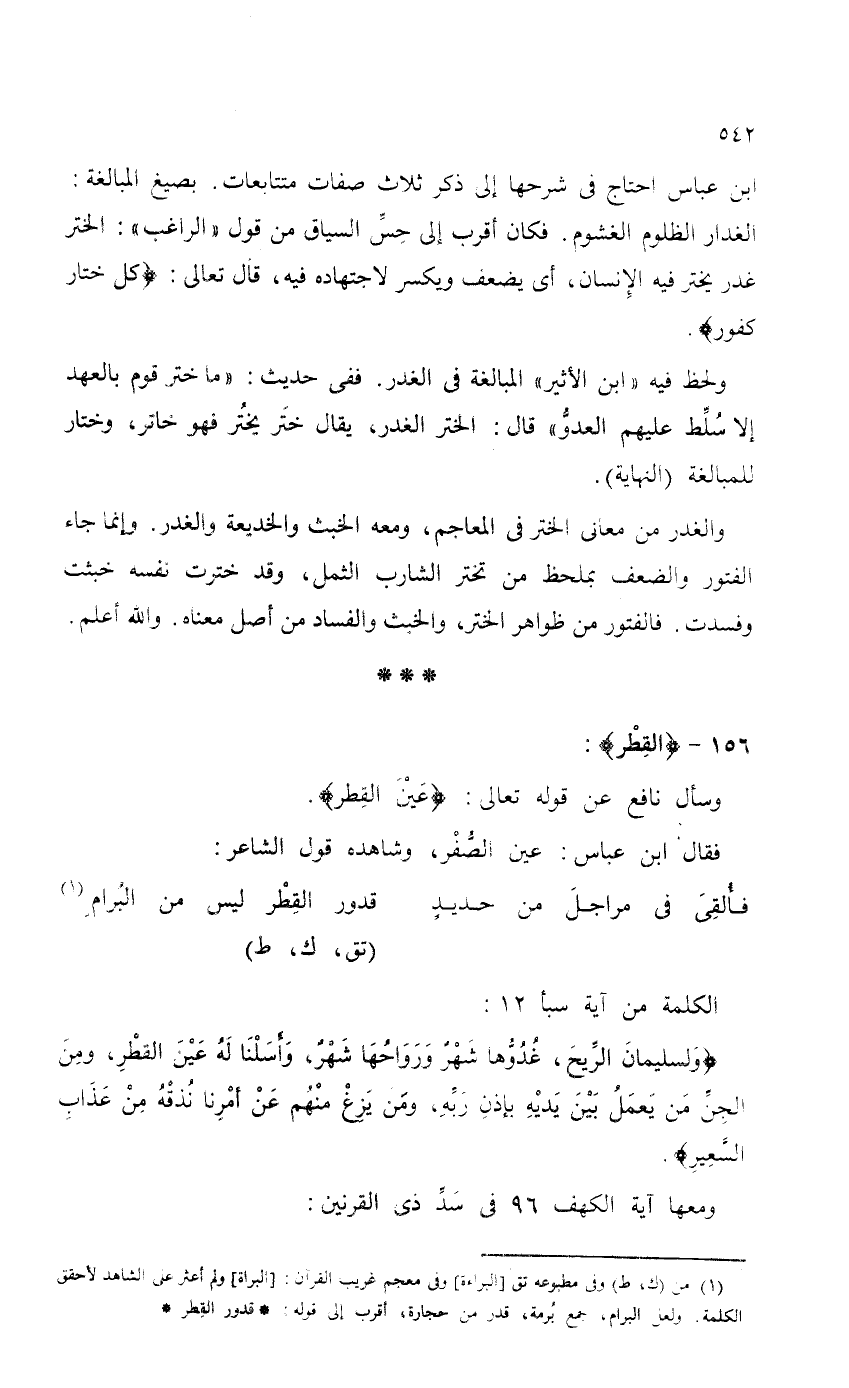 ٥٤٢
ابن عباس احتاج فى شرحها إلى ذكر ثلاث صفات متتابعات. بصيغ المبالغة :
الغدار الظلوم الغشوم. فكان أقرب إلى حِسِّ السياق من قول «الراغب» : الختر
غدر يختر فيه الإنسان، أى يضعف ويكسر لاجتهاده فيه، قال تعالى : ﴿كل ختار
كفور﴾ .
ولحظ فيه «ابن الأثير» المبالغة فى الغدر. ففى حديث : «ما ختر قوم بالعهد
إلا سُلِّط عليهم العدوُّ» قال : الختر الغدر، يقال ختَر يختُر فهو خاتر، وختار
للمبالغة (النهاية).
والغدر من معانى الختر فى المعاجم، ومعه الخبث والخديعة والغدر. وإنما جاء
الفتور والضعف بملحظ من تختر الشارب الثمل، وقد خترت نفسه خبثت
وفسدت. فالفتور من ظواهر الختر، والخبث والفساد من أصل معناه. والله أعلم.
* * *
١٥٦ - ﴿القِطْر﴾ :
وسأل نافع عن قوله تعالى : ﴿عَيْنَ القِطر﴾.
فقال ابن عباس : عين الصُّفْر، وشاهده قول الشاعر :
فـأُلقِىَ فى مراجـلَ من حـديـدٍ قدور القِطْر ليس من البُرامِ (١)
(تق، ك، ط)
الكلمة من آية سبأ ١٢ :
﴿وَلسليمانَ الرِّيحَ، غُدُوُّها شَهْرٌ وَرَوَاحُهَا شَهْرٌ، وَأَسَلْنَا لَهُ عَيْنَ القطْرِ، ومِنَ
الجِنِّ مَن يَعمَلُ بَيْنَ يَديْهِ بإذنِ رَبِّهِ، ومَّن يَزِغْ منْهُم عَنْ أمْرِنا نُذقْهُ مِنْ عَذَابِ
السَّعِيرِ﴾ .
ومعها آية الكهف ٩٦ فى سَدِّ ذى القرنين :
(١) من (ك، ط) وفى مطبوعه تق [البراءة] وفى معجم غريب القرآن : [البراة] ولم أعثر على الشاهد لأحقق
الكلمة. ولعل البرام، جمع بُرمة، قدر من حجارة، أقرب إلى قوله : * قدور القِطر *